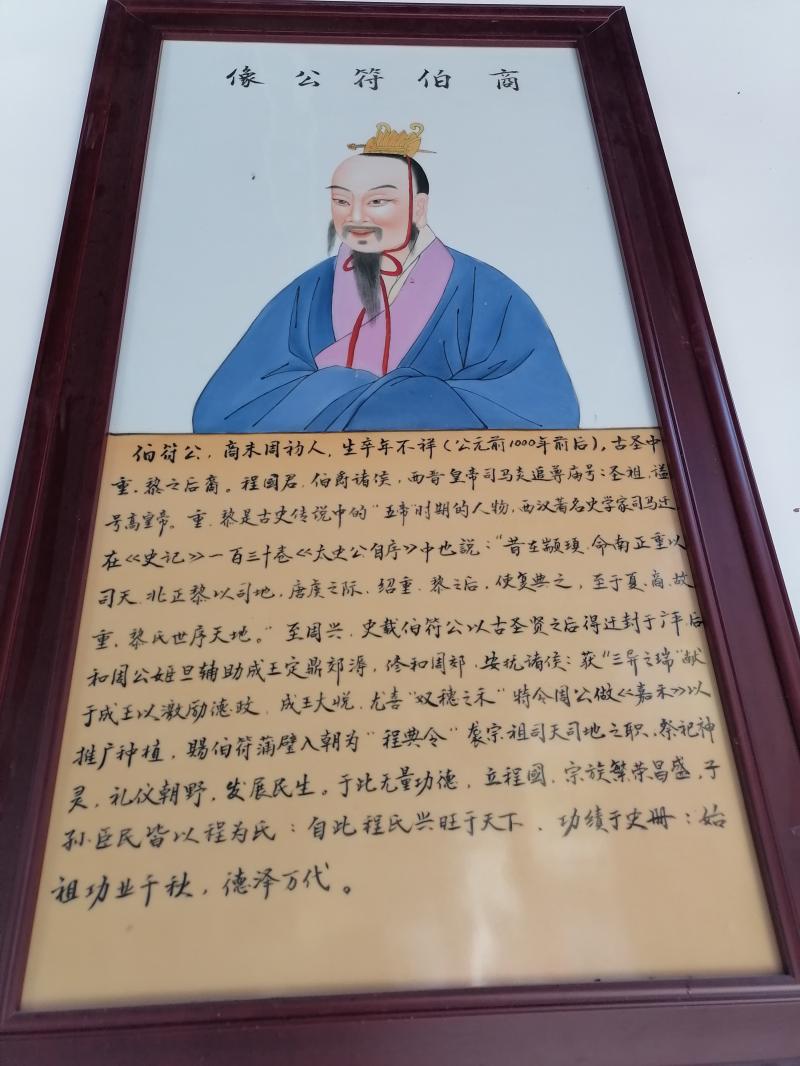 商伯符公像
伯符公，商末周初人，生辛年不祥（公元前1000年前后），古圣中
重.黎之后裔。程國君，伯爵诸侯，西晋皇帝司马炎追尊庙号：圣祖，谥
号高皇帝。重.黎是古史传说中的“五帝”时期的人物，西汉著名史学家司马迁
在《史记》一百三十卷《太史公自序》中也説：“昔在颛顼，命南正重以
司天，北正黎以司地，唐虞之际，绍重.黎之后，使复典之，至于夏.商，故
重.黎氏世序天地。”至周兴，史载伯符公以古圣贤之后得迁封于广平，后
和周公姬旦辅助成王定鼎郏鄏，修和周郊，安抚诸侯：获“三异之瑞”献
于成王以激励德政，成王大悦，尤喜“双穗之禾”特令周公做《嘉禾》以
推广种植，赐伯符蒲璧入朝为“程典令”袭宗祖司天司地之职，祭祀神
灵，礼仪朝野，发展民生。于此无量功德，立程國，宗族繁荣昌盛，子
孙臣民皆以程为氏：自此程氏兴旺于天下，功绩于史册：始
祖功业千秋，德泽万代。